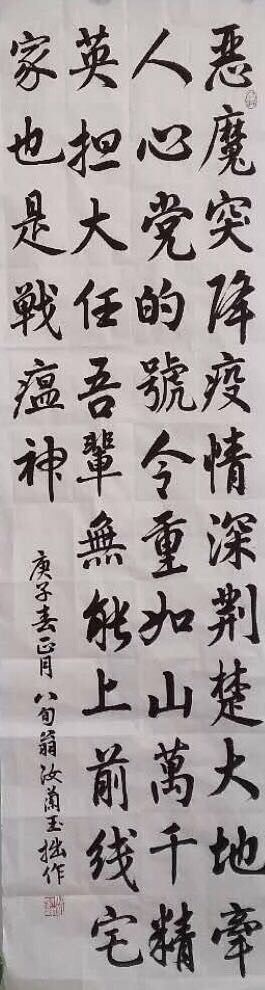 恶魔突降疫情深荆楚大地牵
人心党的號令重如山萬千精
英担大任吾輩無能上前线宅
家也是戰瘟神
庚子春正月八旬翁汝蘭玉拙作